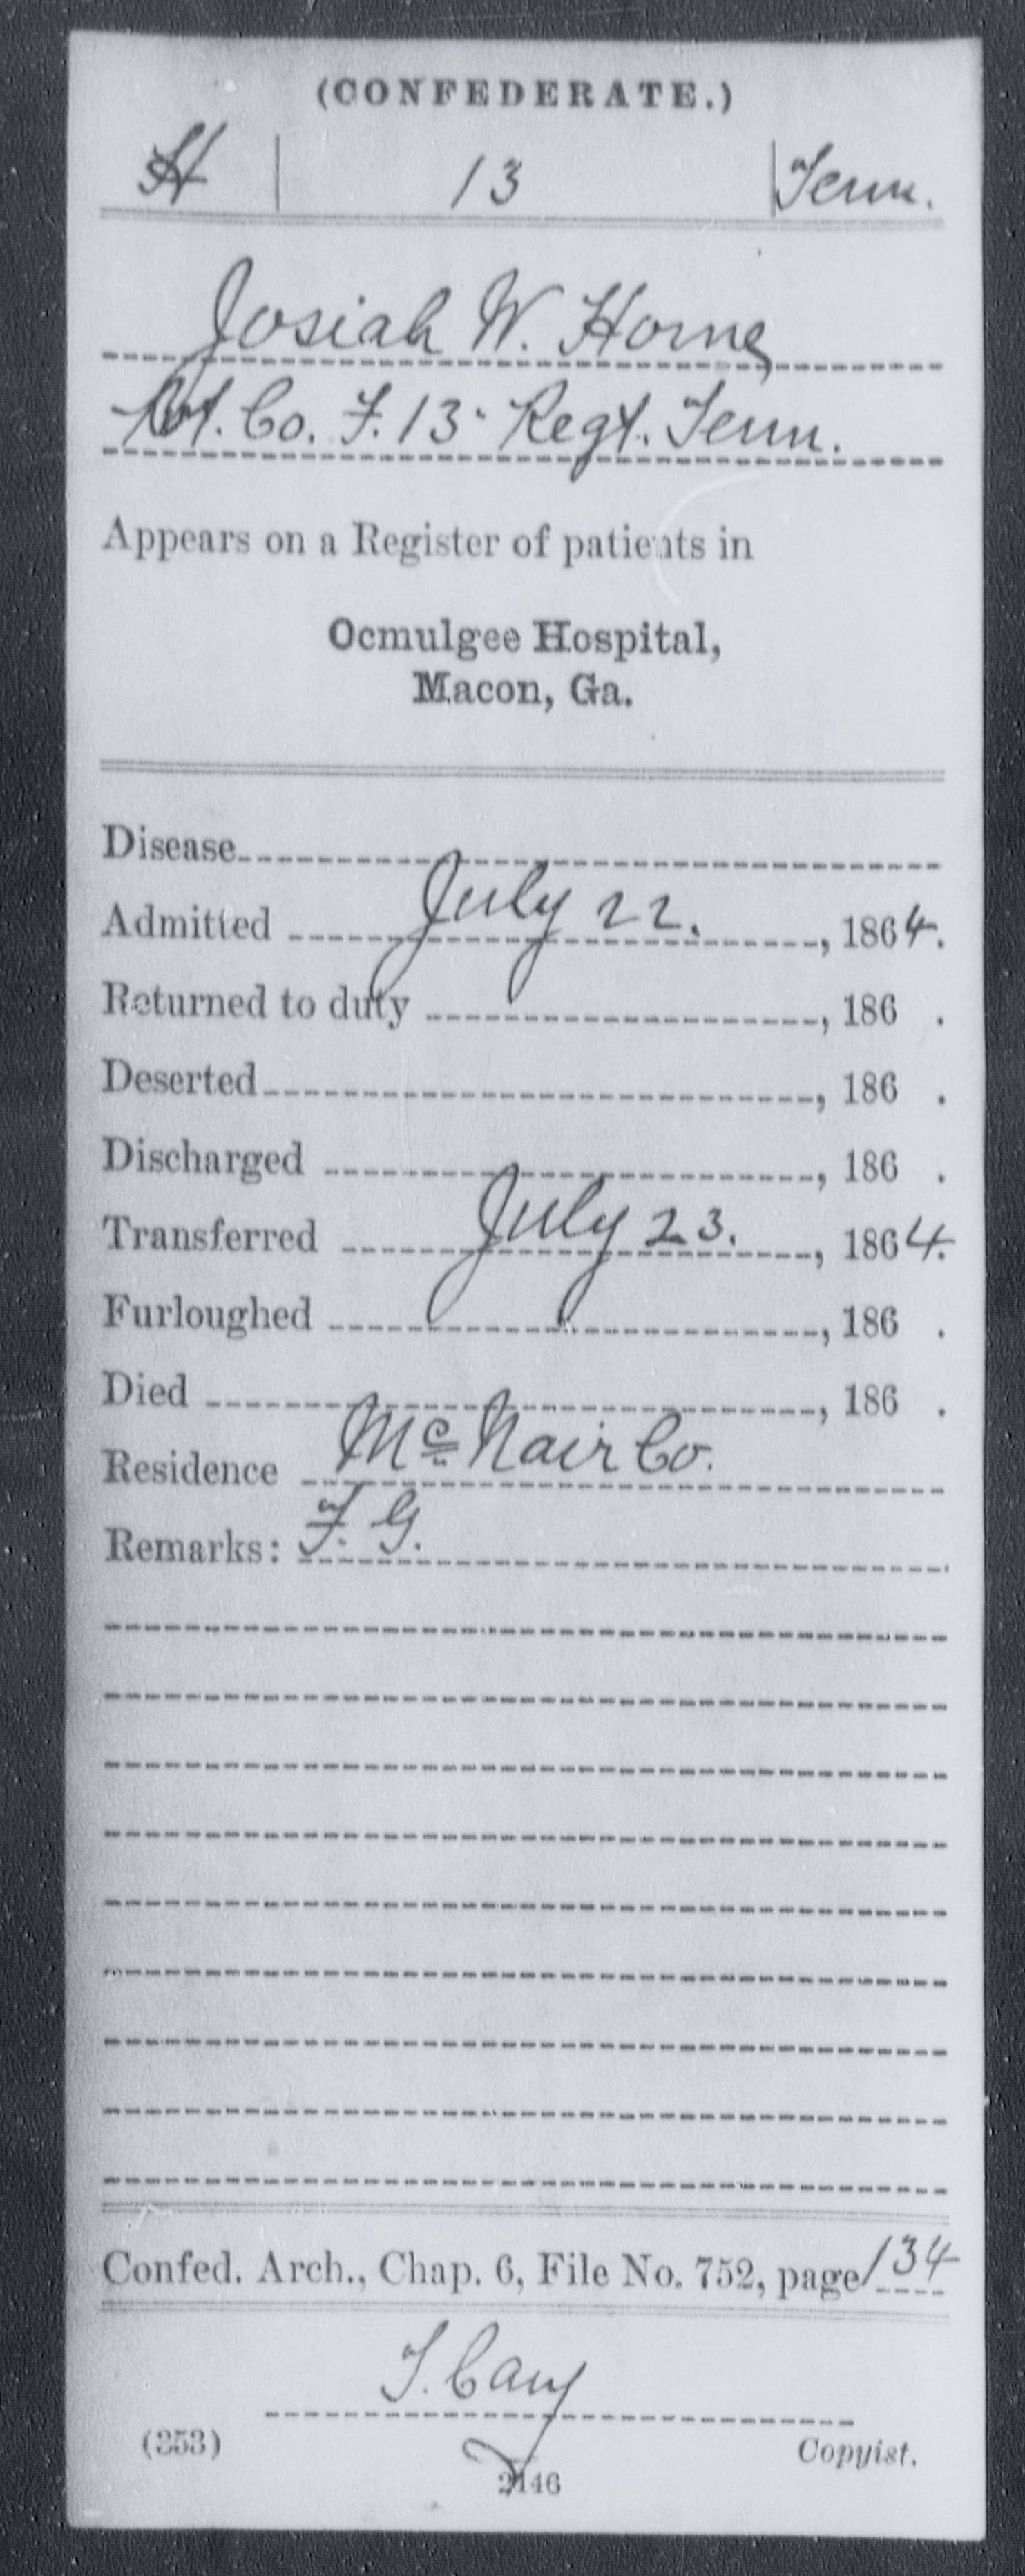 (CONFEDERATE.)
H | 13 | Tenn.
Josiah W. Horne
Pvt. Co. F. 13 Regt. Tenn.
Appears on a Register of patients in
Ocmulgee Hospital,
Macon, Ga.
Disease
Admitted July 22., 1864.
Returned to duty , 186 .
Deserted , 186 .
Discharged , 186 .
Transferred July 23., 1864.
Furloughed , 186 .
Died , 186 .
Residence McNair Co.
Remarks: F. G.
Confed. Arch., Chap. 6, File No. 752, page 134
T. Cary
(353) Copyist.
2146